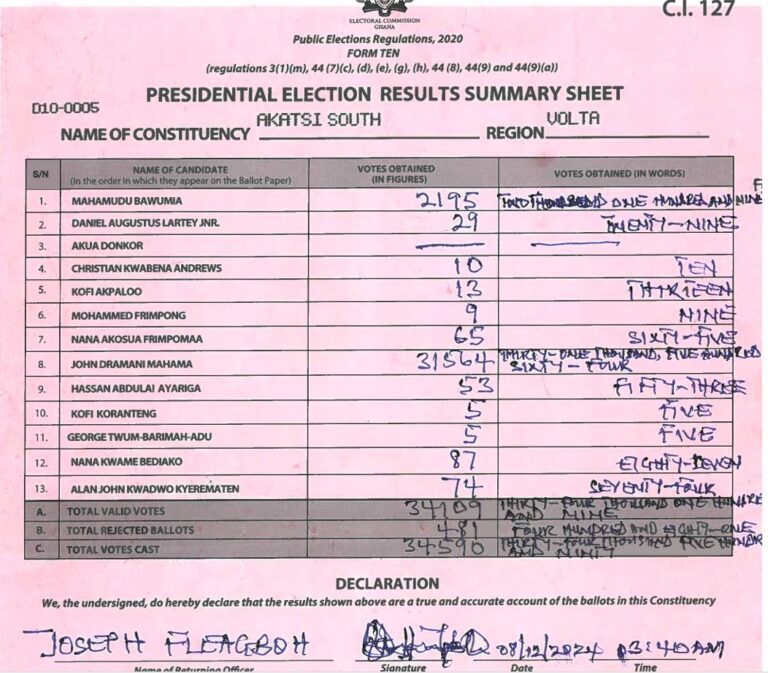 C.I. 127
ELECTORAL COMMISSION
GHANA
Public Elections Regulations, 2020
FORM TEN
(regulations 3(1)(m), 44 (7)(c), (d), (e), (g), (h), 44 (8), 44(9) and 44(9)(a))
PRESIDENTIAL ELECTION RESULTS SUMMARY SHEET
D10-0005
NAME OF CONSTITUENCY AKATSI SOUTH REGION VOLTA
S/N NAME OF CANDIDATE (In the order in which they appear on the Ballot Paper) VOTES OBTAINED (IN FIGURES) VOTES OBTAINED (IN WORDS)
1. MAHAMUDU BAWUMIA 2195 TWO THOUSAND ONE HUNDRED AND NINE
2. DANIEL AUGUSTUS LARTEY JNR. 29 TWENTY-NINE
3. AKUA DONKOR
4. CHRISTIAN KWABENA ANDREWS 10 TEN
5. KOFI AKPALOO 13 THIRTEEN
6. MOHAMMED FRIMPONG 9 NINE
7. NANA AKOSUA FRIMPOMAA 65 SIXTY-FIVE
8. JOHN DRAMANI MAHAMA 31564 THIRTY-ONE THOUSAND, FIVE HUNDRED SIXTY-FOUR
9. HASSAN ABDULAI AYARIGA 53 FIFTY-THREE
10. KOFI KORANTENG 5 FIVE
11. GEORGE TWUM-BARIMAH-ADU 5 FIVE
12. NANA KWAME BEDIAKO 87 EIGHTY-SEVEN
13. ALAN JOHN KWADWO KYEREMATEN 74 SEVENTY-FOUR
A. TOTAL VALID VOTES 34109 THIRTY-FOUR THOUSAND ONE HUNDRE AND NINE
B. TOTAL REJECTED BALLOTS 481 FOUR HUNDRED AND EIGHTY-ONE
C. TOTAL VOTES CAST 34590 THIRTY-FOUR THOUSAND FIVE HUNDR AND NINTY
DECLARATION
We, the undersigned, do hereby declare that the results shown above are a true and accurate account of the ballots in this Constituency
JOSEPH FLEAGBOH 08/12/2024 03:40AM
Name of Returning Officer Signature Date Time